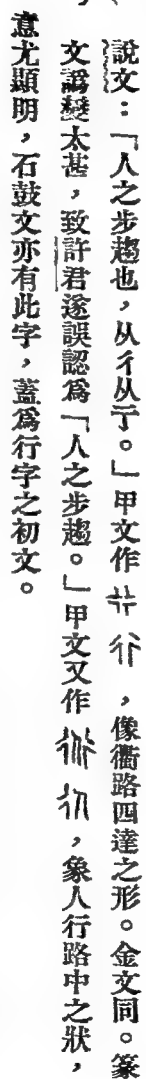 說文：「人之步趨也，从彳从亍。」甲文作 ，像衢路四達之形。金文同。篆
文譌變太甚，致許君遂誤認爲「人之步趨。」甲文又作 ，象人行路中之狀，
意尤顯明，石鼓文亦有此字，蓋爲行字之初文。